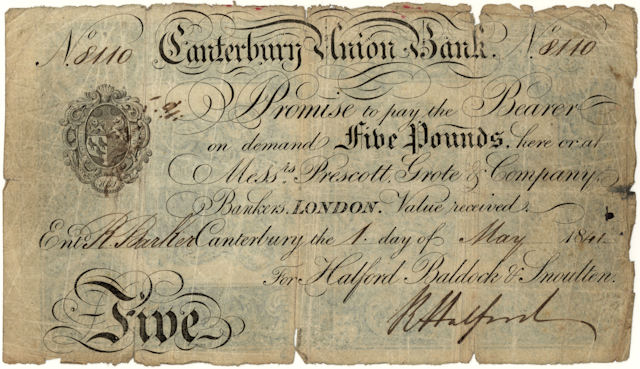 No. 8110 Canterbury Union Bank. No. 8110
I Promise to pay the Bearer
on demand Five Pounds, here or at
Messrs. Prescott, Grote & Company,
Bankers, LONDON. Value received.
Entd. R Barker Canterbury the 1. day of May 1841
For Halford Baldock & Snoulten.
Five RHalford